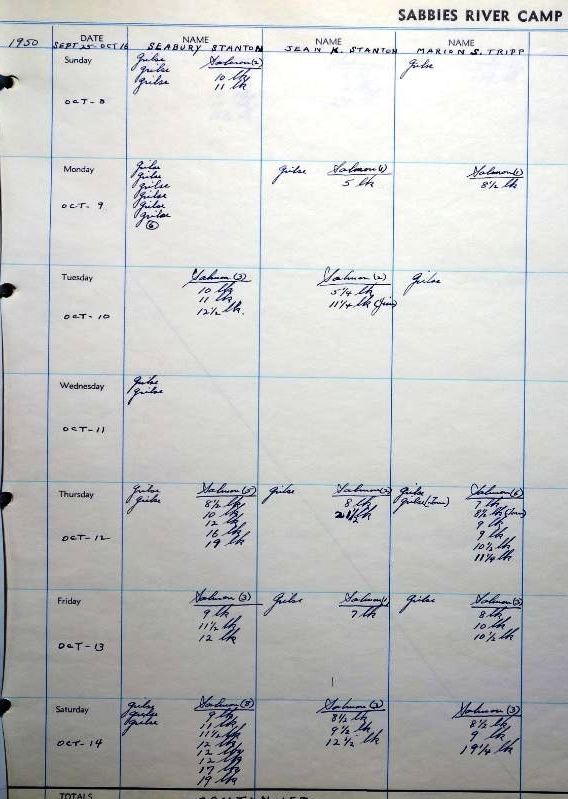 SABBIES RIVER CAMP
1950 DATE NAME NAME NAME
SEPT 25 - OCT 16 SEABURY STANTON JEAN K. STANTON MARION S. TRIPP
Sunday
OCT - 8
grilse
grilse
grilse
Salmon (2)
10 lb
11 lb
Grilse
Monday
OCT - 9
grilse
grilse
grilse
grilse
grilse
grilse
6
grilse
Salmon (1)
5 lb
Salmon (1)
8 1/2 lb
Tuesday
OCT - 10
Salmon (3)
10 lb
11 lb
12 1/2 lb
Salmon (2)
5 1/4 lb
11 1/4 lb (Jim)
Grilse
Wednesday
OCT - 11
grilse
grilse
Thursday
OCT - 12
Grilse
Grilse
Salmon (5)
8 1/2 lb
10 lb
12 lb
16 lb
19 lb
Grilse
Salmon (2)
8 lb
21 1/2 lb
Grilse
Grilse
Salmon (6)
7 lb
8 1/2 lb
9 lb
9 lb
10 1/2 lb
11 1/4 lb
Friday
OCT - 13
Salmon (3)
9 lb
11 1/2 lb
12 lb
Grilse
Salmon (1)
7 lb
Grilse
Salmon (3)
8 lb
10 lb
10 1/2 lb
Saturday
OCT - 14
grilse
grilse
grilse
Salmon (8)
9 lb
11 lb
11 1/2 lb
12 lb
12 lb
12 lb
17 lb
19 lb
Salmon (3)
8 1/2 lb
9 1/2 lb
12 1/2 lb
Salmon (3)
8 1/2 lb
9 lb
19 1/4 lb
TOTALS